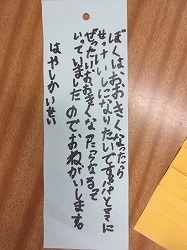 ぼくはおおきくなったら
せっけいしになりたいです。パパとママに
ぜったいおおきくなったらなるって
いっていましたのでおねがいします。
はやしかいせい